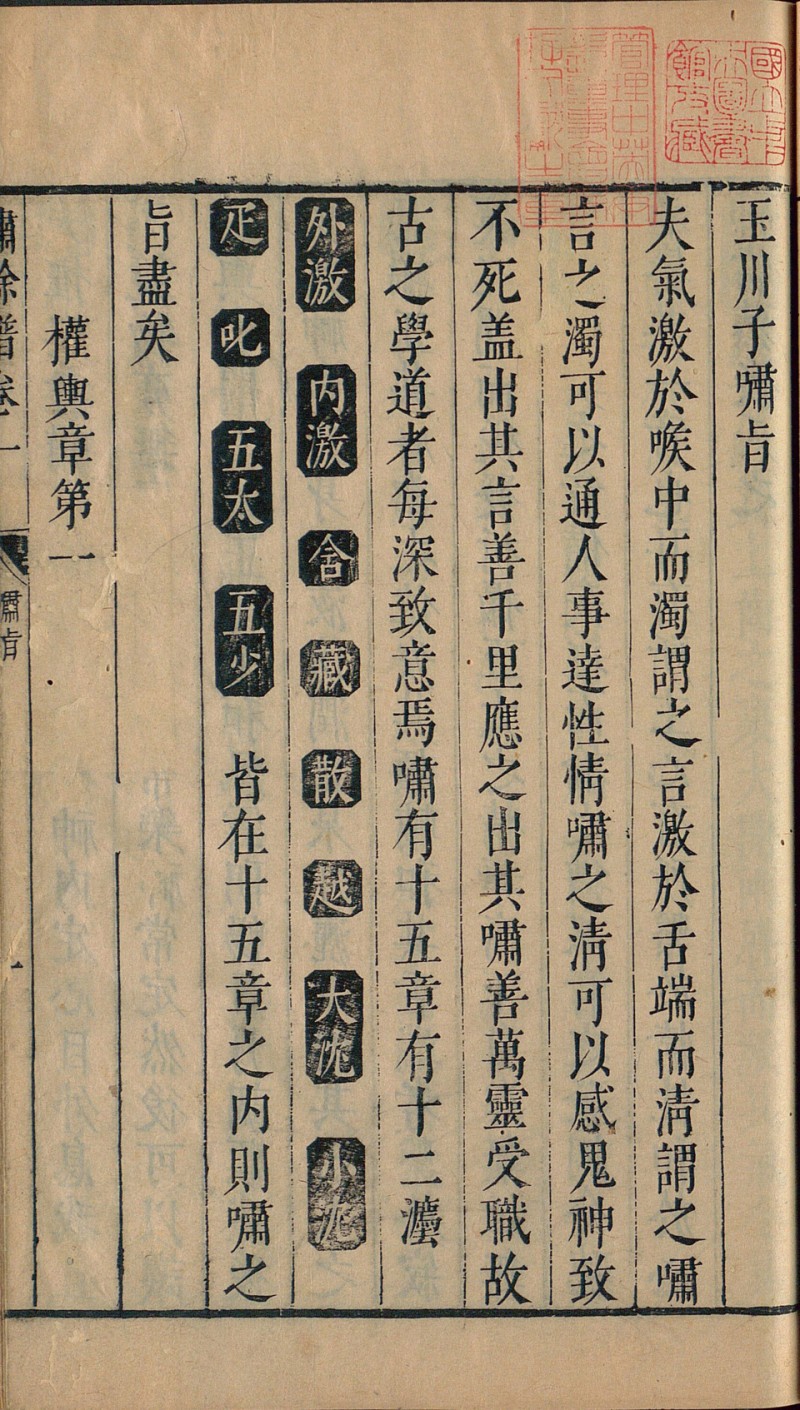 玉川子嘯旨
夫氣激於喉中而濁謂之言激於舌端而淸謂之嘯
言之濁可以通人事達性情嘯之淸可以感鬼神致
不死盖出其言善千里應之出其嘯善萬靈受職故
古之學道者每深致意焉嘯有十五章有十二灋
外激 内激 含 藏 散 越 大沈 小沈
疋 叱 五太 五少 皆在十五章之内則嘯之
旨盡矣
權輿章第一
嘯餘譜卷一
嘯旨
一
國立
館收藏
管理中